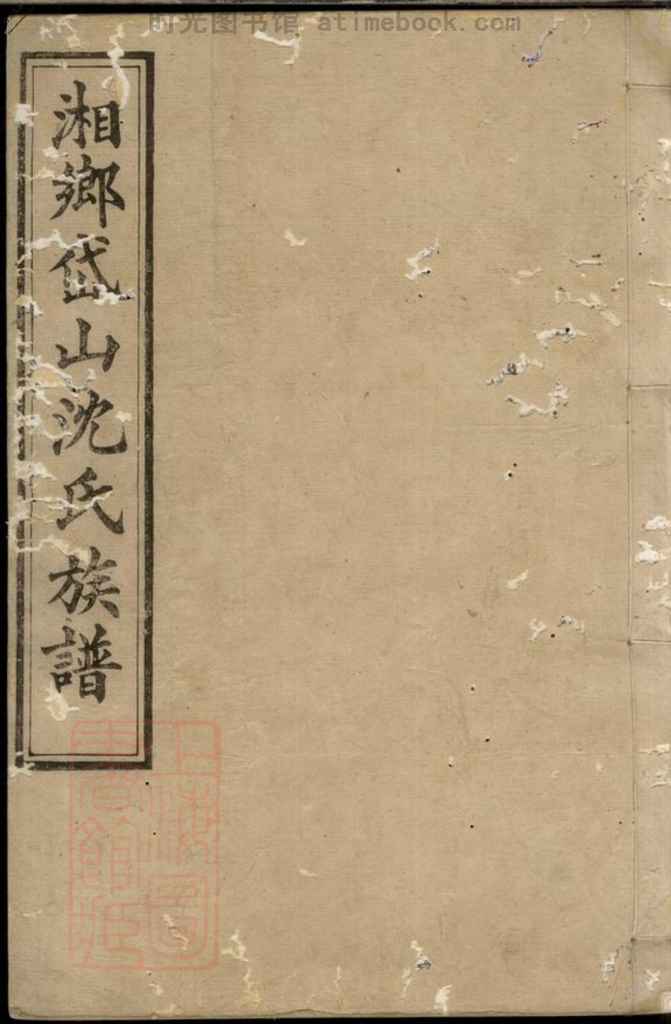 时光图书馆 atimebook.com
湘鄉岱山沈氏族譜